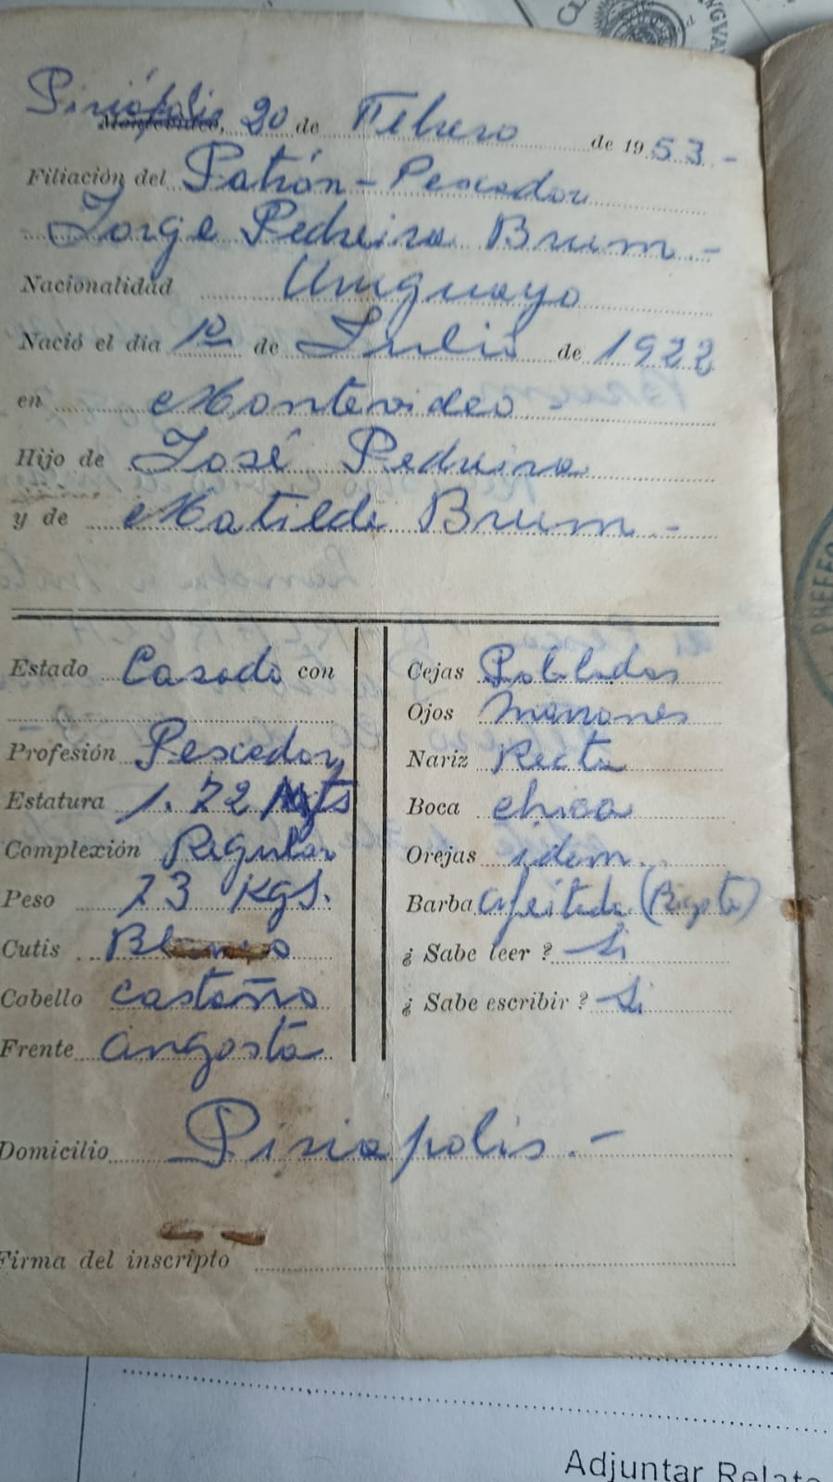 Piriópolis, 20 de Febrero de 1953.-
Filiación del Patrón - Pescador
Jorge Pedreira Brum.-
Nacionalidad Uruguayo
Nació el día 1º de Julio de 1922
en Montevideo
Hijo de José Pedreira
y de Matilde Brum.-
Estado Casado con
Profesión Pescador
Estatura 1.72 Mts
Complexión Regular
Peso 73 Kgs.
Cutis Blanco
Cabello castaño
Frente angosta
Cejas Pobladas
Ojos Marrones
Nariz Recta
Boca chica
Orejas idem.
Barba afeitada (Bigote)
¿ Sabe leer ? Si
¿ Sabe escribir ? Si
Domicilio Piriapolis.-
Firma del inscripto
Adjuntar